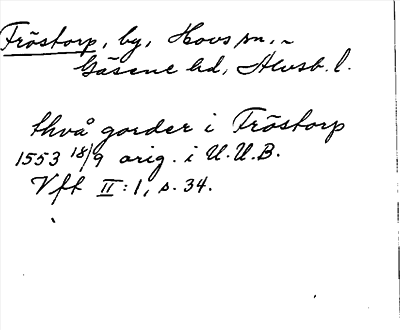 Fröstorp, by, Hovs sn, ~
Gäsene hd, Älvsb. l.
thvå gorder i Fröstorp
1553 18/9 orig. i U.U.B.
Vft II:1, s. 34.